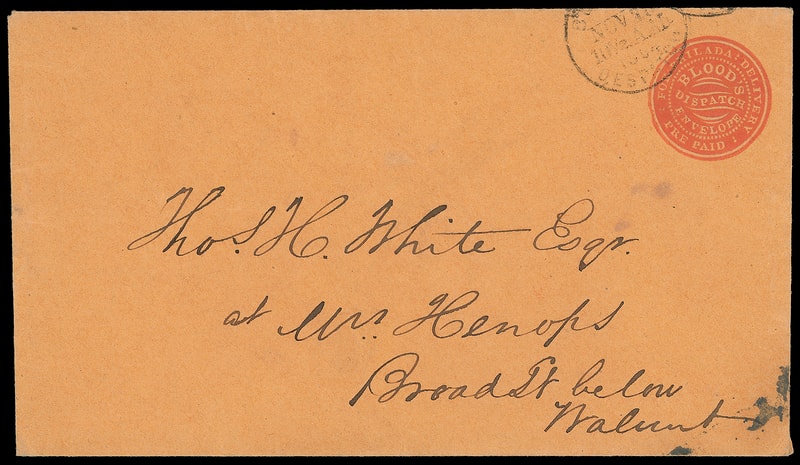 NOV
DESP
FOR PHILADA: DELIVERY
BLOOD'S
DISPATCH
ENVELOPE
PRE PAID
Thos. H. White Esqr.
at Mrs. Henops
Broad St below
Walnut